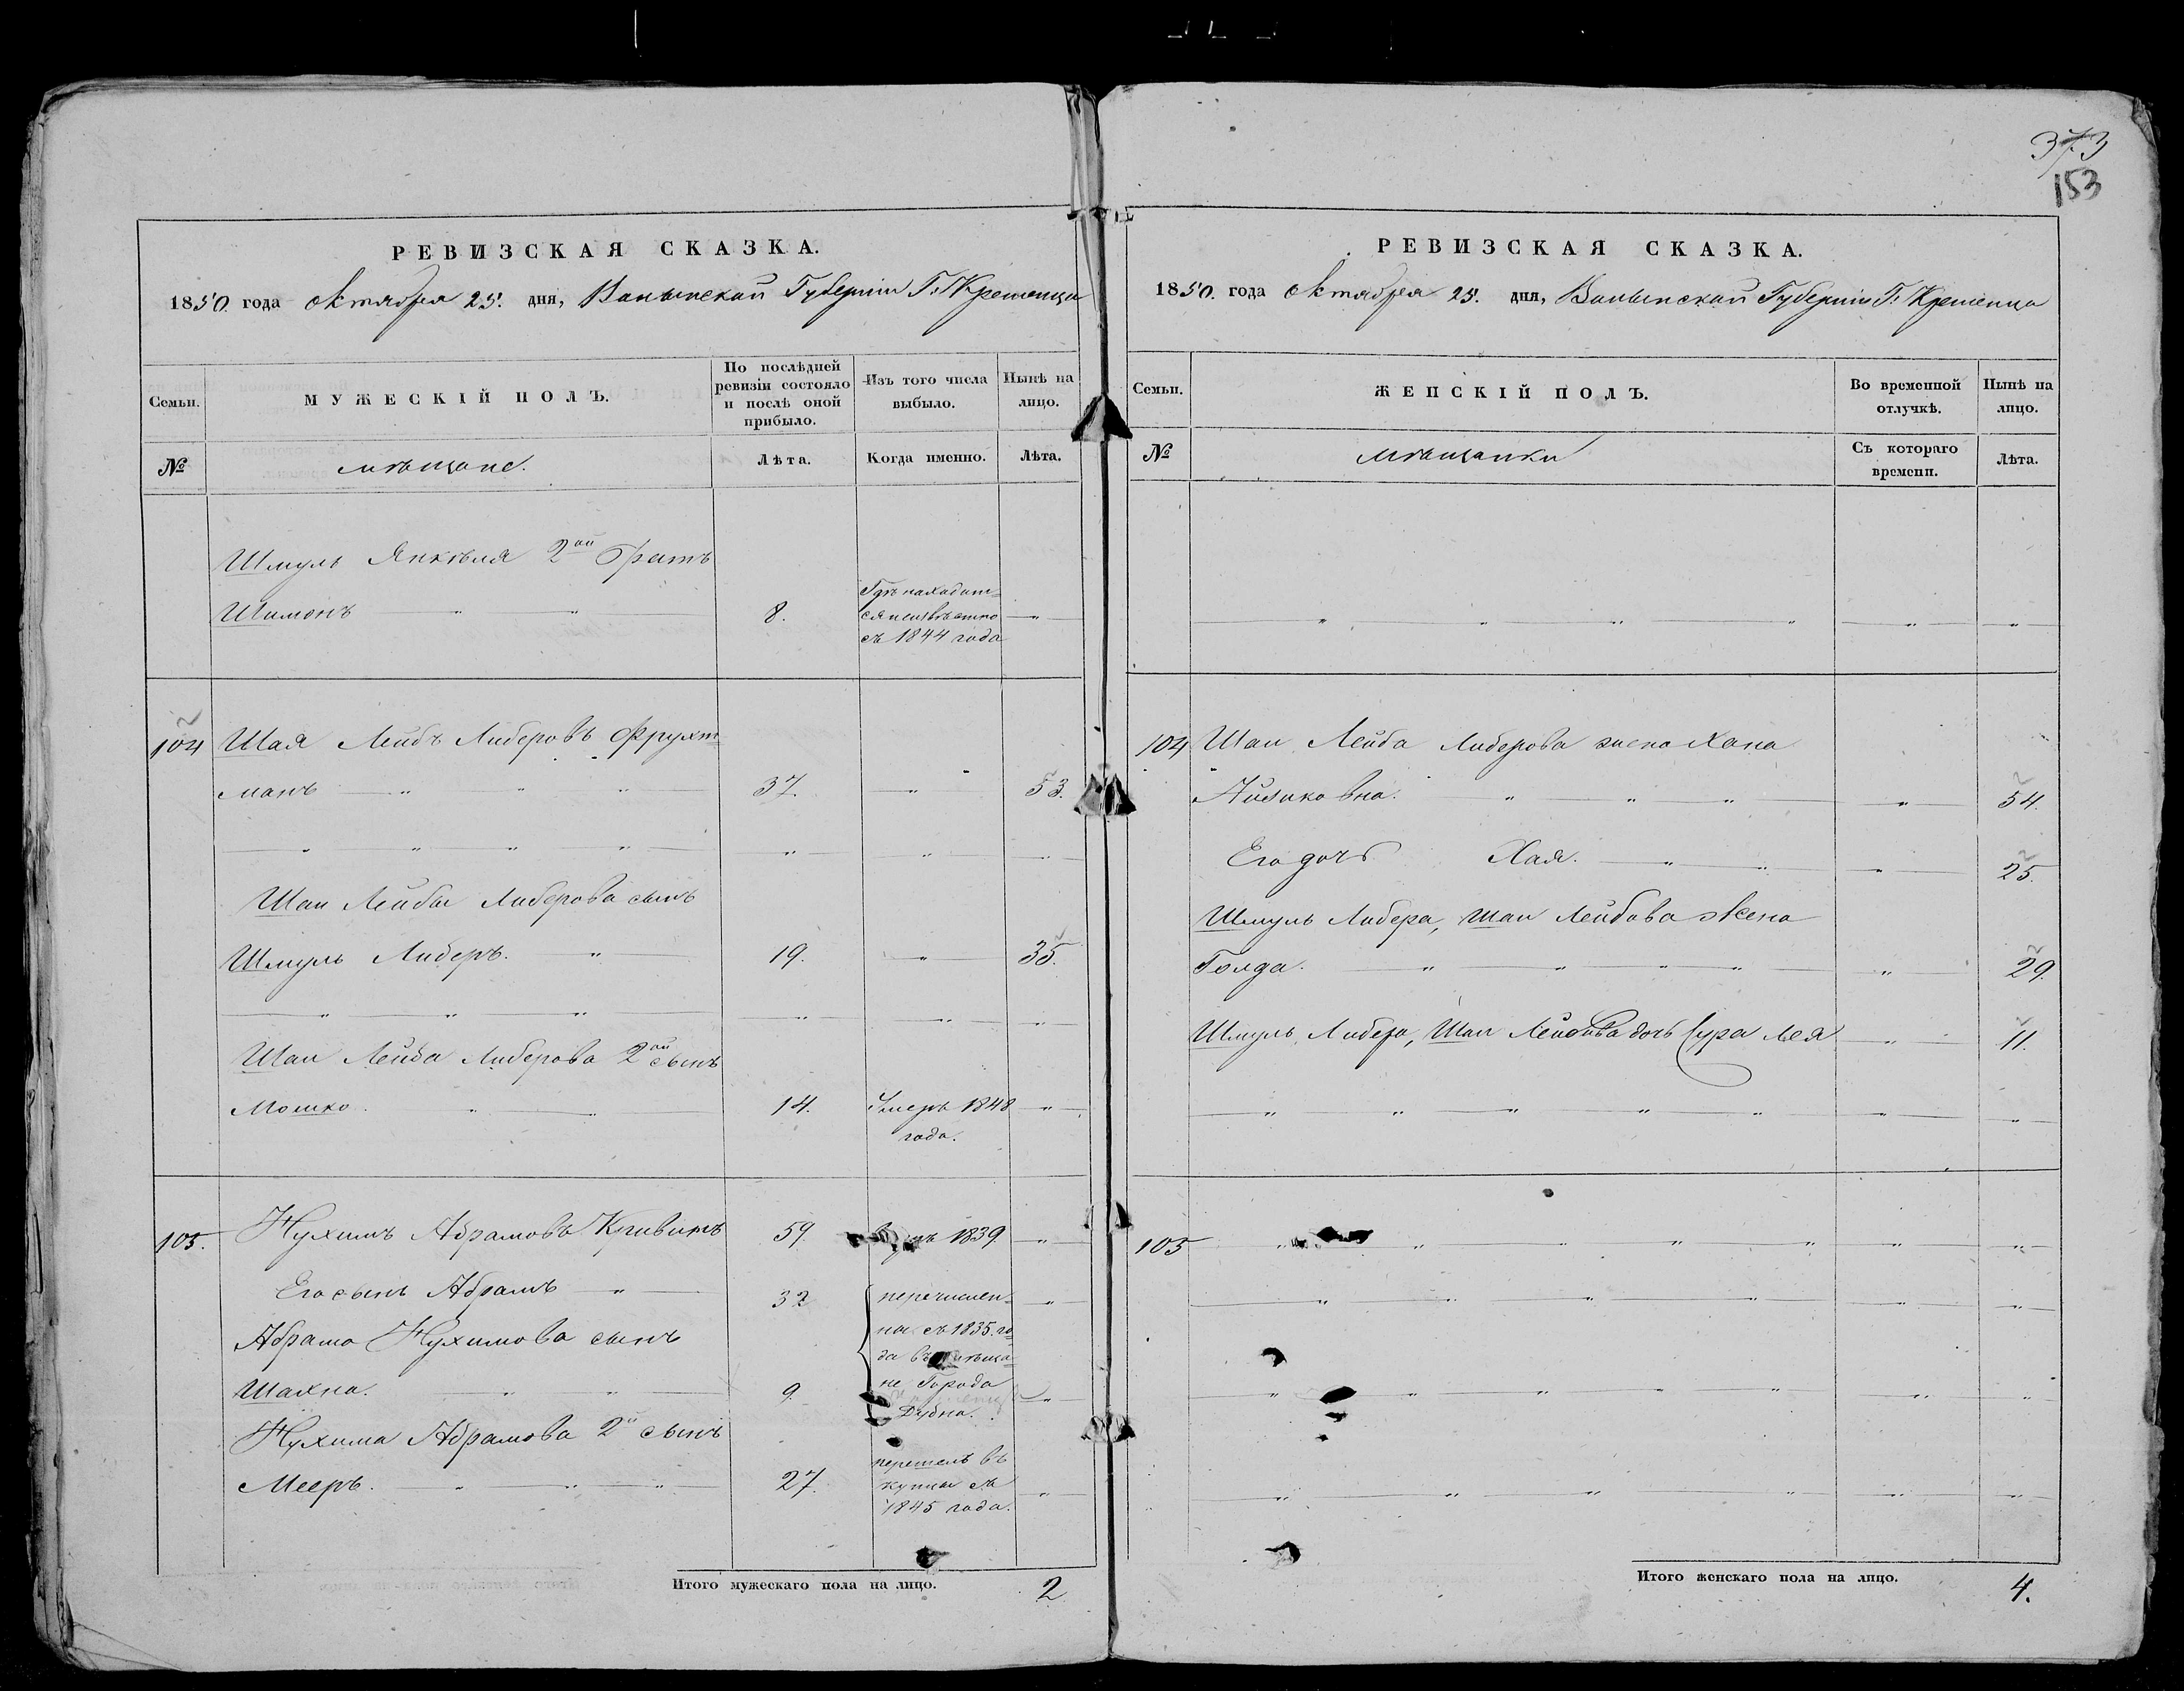 РЕВИЗСКАЯ СКАЗКА.
1850. года октября 25. дня, Волынской Губерніи Г: Кременца
Семьи.
МУЖЕСКІЙ ПОЛЪ.
По послѣдней ревизіи состояло и послѣ оной прибыло.
Изъ того числа выбыло.
Нынѣ на лицо.
№
мѣщане.
Лѣта.
Когда именно.
Лѣта.
Шмуль Янкеля 2ой братъ
Шимонъ " " 8. Гдѣ находит=
ся неизвѣстно "
съ 1844 года
104 Шая Лейбъ Либеровъ Фрухт=
манъ " " " 37. " 53.
" " " " " " "
Шаи Лейбы Либерова сынъ
Шмуль Либеръ. " 19. " 35.
" " " " " "
Шаи Лейба Либерова 2ой сынъ
Мошко. " " 14. Умеръ 1848 "
года.
105. Нухимъ Абрамовъ 59. 1839. "
Его сынъ Абрамъ " 32 перечислен= "
Абрама Нухимова сынъ
ны съ 1835. го=
да въ мѣща=
Шахна. " " 9. не Города "
Дубна.
Нухима Абрамова 2й сынъ
Мееръ. " " " 27. перешелъ въ
купцы съ "
1845 года.
Итого мужескаго пола на лицо. 2
373
153
РЕВИЗСКАЯ СКАЗКА.
1850. года октября 25. дня, Волынской Губерніи Г: Кременца
Семьи.
ЖЕНСКІЙ ПОЛЪ.
Во временной отлучкѣ.
Нынѣ на лицо.
№
мѣщанки
Съ котораго времени.
Лѣта.
" " " " " "
104 Шаи Лейба Либерова жена Хана
Айзиковна. " " " " 54.
Его дочь Хая. " " " 25.
Шмуль Либера, Шаи Лейбова жена
Голда. " " " " " 29.
Шмуль Либера, Шаи Лейбова дочь Сура Лея " 11.
" " " " " " "
105 " " " " " " "
" " " " " "
" " " " " " "
" " " " " "
Итого женскаго пола на лицо. 4.